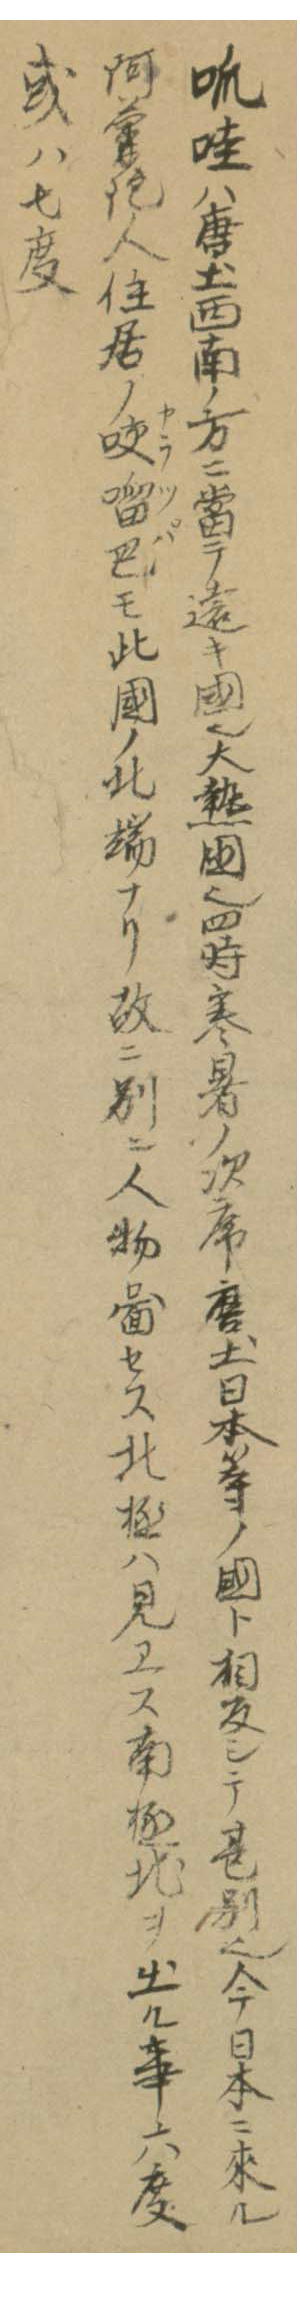 呱哇ハ唐土西南ノ方ニ當テ遠キ國也大熱國也四時寒暑ノ次序唐土日本等ノ國ト相反シテ甚別也今日本ニ來ル
阿蘭陀人住居ノ咬𠺕吧モ此國ノ北端ナリ故ニ別ニ人物圖セス北極ハ見エス南極地ヲ出ル事六度
ヤラツパ
或ハ七度